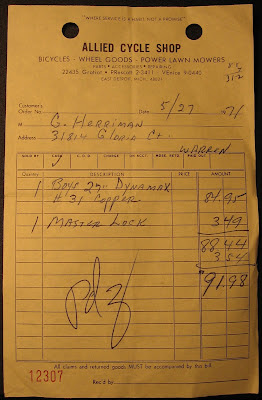 "WHERE SERVICE IS A HABIT, NOT A PROMISE"
ALLIED CYCLE SHOP
BICYCLES - WHEEL GOODS - POWER LAWN MOWERS
PARTS • ACCESSORIES • REPAIRING
22635 Gratiot • PRescott 2-3411 VEnice 9-0440
EAST DETROIT, MICH. 48021
Customer's
Order No. Date 5/27 71
M G. Herriman
Address 31814 Gloria Ct.
WARREN
SOLD BY CASH C.O.D. CHARGE ON ACCT. MDSE. RETD. PAID OUT
Quantity DESCRIPTION PRICE AMOUNT
1 Boys 27" DYNAMAX
# 31 COPPER 84.95
1 MASTER LOCK 3 49
88 44
3 54
91.98
pd
All claims and returned goods MUST be accompanied by this bill
12307
Rec'd by